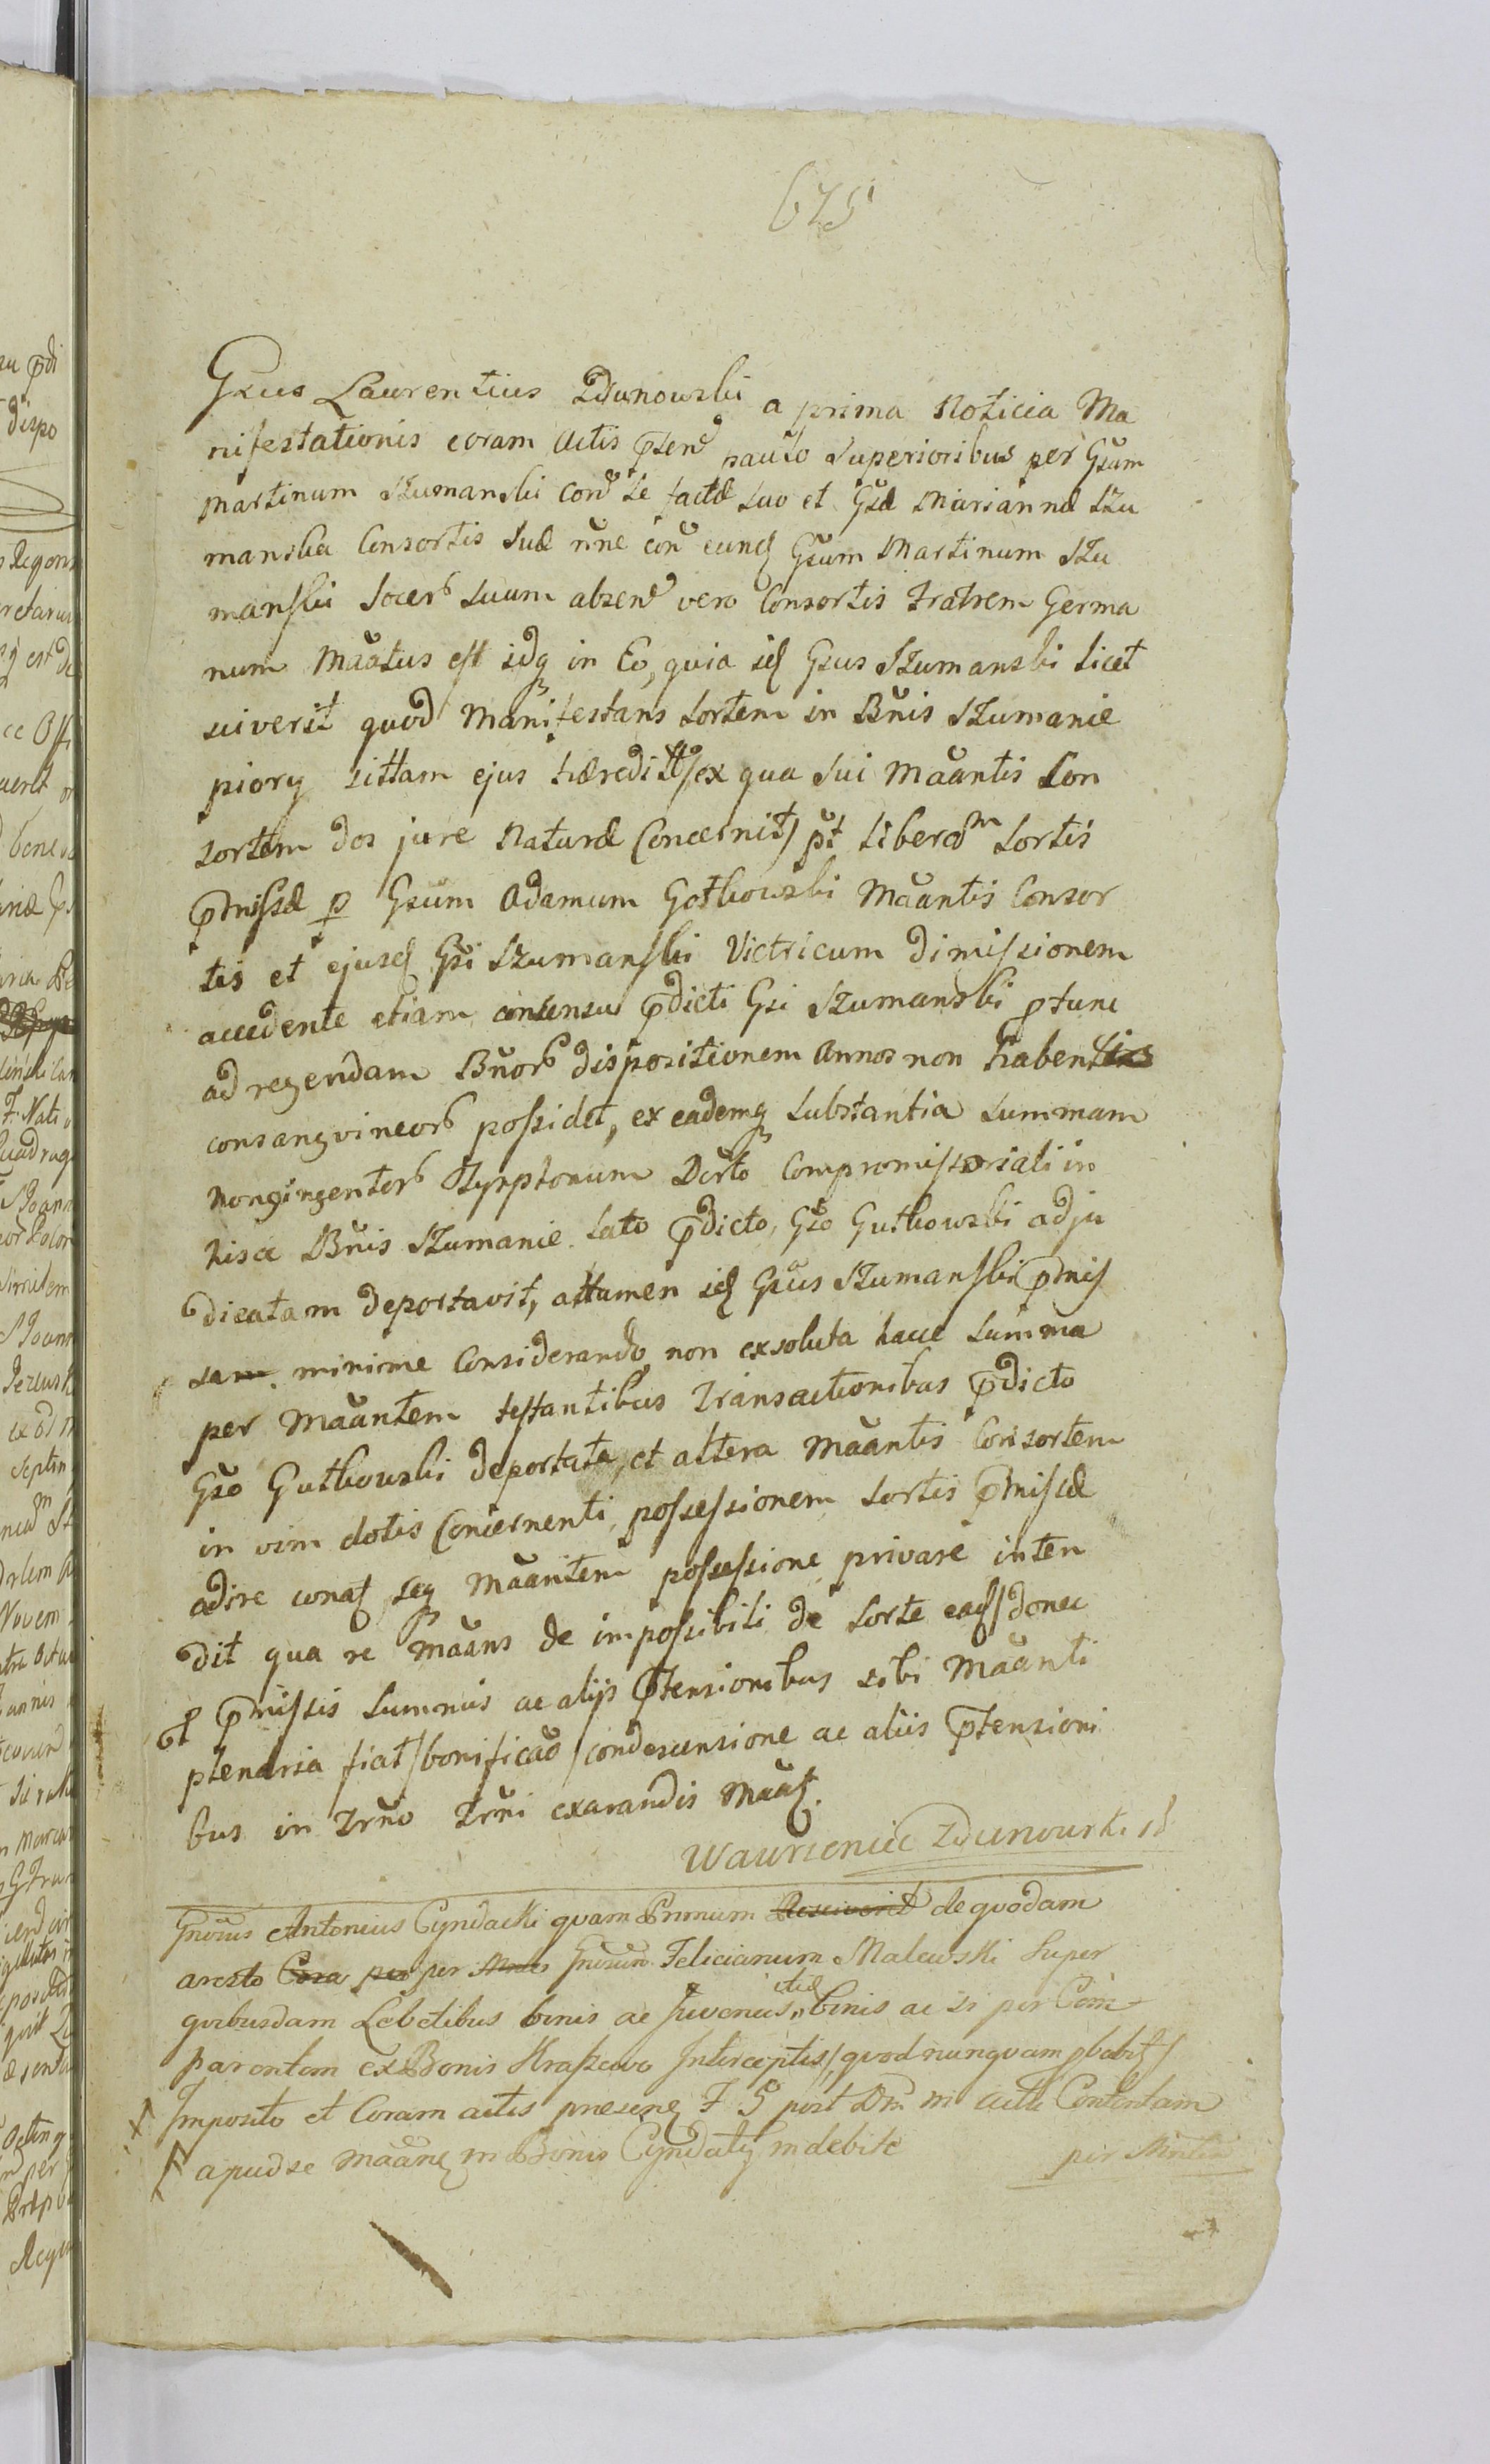 675
Gsus Laurentius Zdunowski a prima Noticia Ma
nifestationis coram Actis pñten haud Superioribus per Gsum
Martinum Szumanski con se factæ suo et Gsæ Mariannæ Szu
manska Consortis suæ nñe con eund Gsum Martinum Szu
manski Socer suum absen vero Consortis Fratrem Germa
num Maatus est idq in Eo, quia id Gsus Szumanski licet
sciverit quod Manifestans Sortem in Bnis Szumanie
piory sittam ejus hæredit /ex qua sui Maantis Con
sortem dos jure Naturæ Concernit/ pt liberam Sortis
pmissæ p Gsum Adamum Gotkowski Maantis Consor
tis et ejusd Gsi Szumanski Victricum dimissionem
accedente etiam consensu pdicti Gsi Szumanski ptunc
ad regendam Bnor dispositionem Annos non haben
consangvineor possidet, ex eademq substantia summam
Nongingentor Tynphonum Dcrto Compromissoriali in
hisce Bnis Szumanie lato pdicto Gso Gutkowski adju
dicatam deportavit, attamen id Gsus Szumanski pmis
sam minime Considerando non exsoluta hacce summa
per Maantem testantibus Transactionibus pdicto
Gso Gutkowski deportata, et altera Maantis Consortem
in vim dotis Concernenti, possessionem Sortis pmissæ
adire conat seq Maantem possessione privare inten
dit qua re Maans de impossibili de Sorte ead /donec
et pmissis summis ac alijs ptensionibus sibi Maanti
plenaria fiat/ bonificao /condescensione ac aliis ptensioni
bus in Trno Trni exarandis Maat.
Wawrzeniec Zdunowski
Gnosus Antonius Cyndacki quam Primum Resciverit de quodam
aresto Cora per per Gnosum Felicianum Malewski Super
qvibusdam Lebetibus binis ac Juvencis itid binis ac si per Com
parentem ex Bonis Kraszewo Interceptis/ qvod nunqvam pbabit/
Imposito et Coram actis presen F 5 post Dm in actu Contentam
apud se Maan in Bonis Cyndaty indebite per Mntia